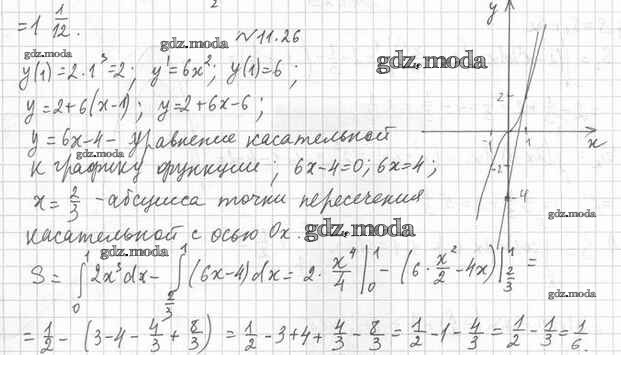 2
= 1 1/12.
gdz.moda
gdz.moda
№ 11.26
y
gdz.moda
y(1) = 2·1³ = 2; y' = 6x²; y(1) = 6;
y = 2 + 6(x-1); y = 2 + 6x - 6;
2
y = 6x - 4 - уравнение касательной
-1 1 x
gdz.moda
к графику функции; 6x - 4 = 0; 6x = 4;
-2
x = 2/3 - абсцисса точки пересечения
-4
gdz.moda
касательной с осью Ox.
gdz.moda
gdz.moda
S = ∫₀¹ 2x³dx - ∫_{2/3}¹ (6x-4)dx = 2·x⁴/4 |₀¹ - (6·x²/2 - 4x)|_{2/3}¹ =
gdz.moda
= 1/2 - (3 - 4 - 4/3 + 8/3) = 1/2 - 3 + 4 + 4/3 - 8/3 = 1/2 - 1 - 4/3 = 1/2 - 1/3 = 1/6.